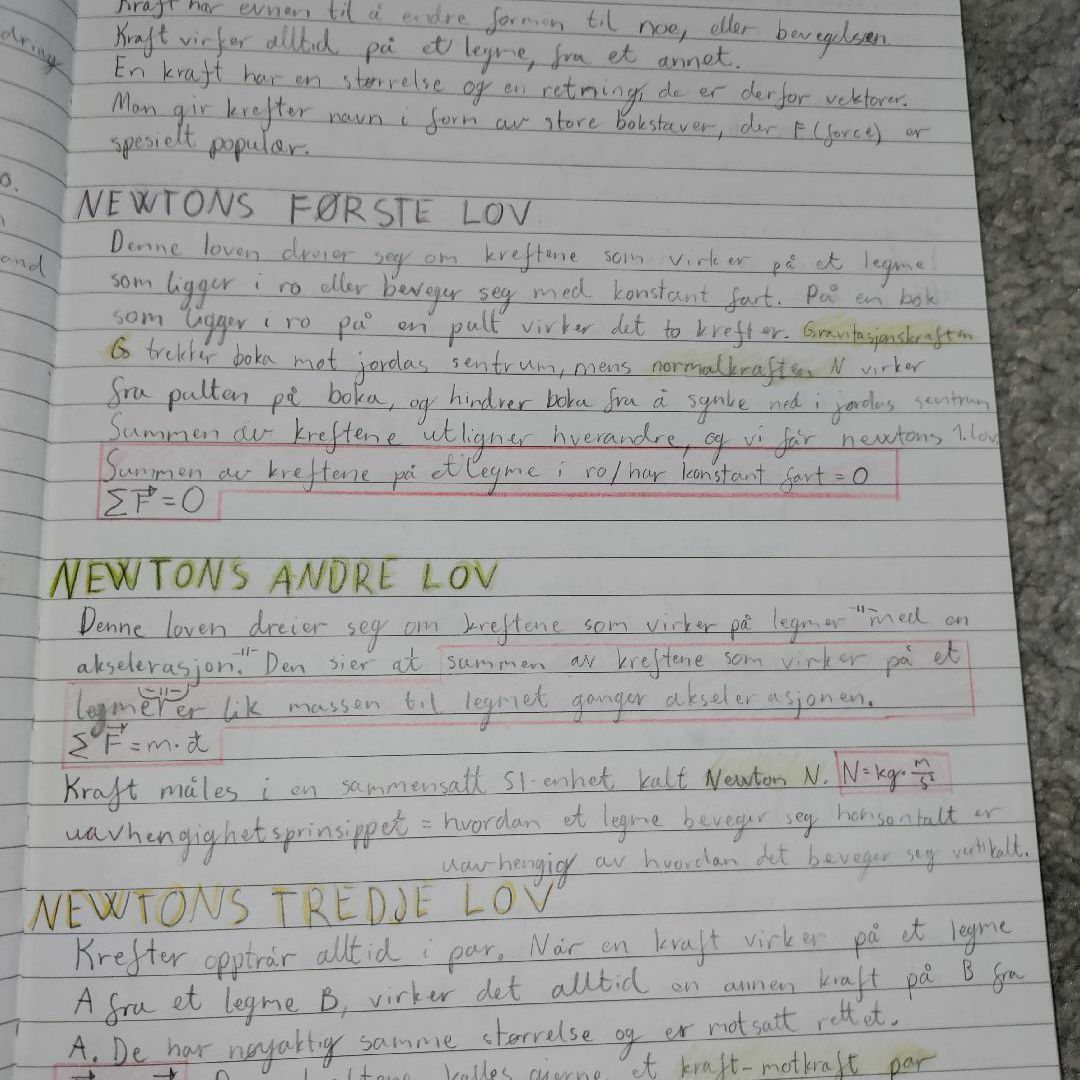 Kraft har evnen til å endre formen til noe, eller bevegelsen.
Kraft virker alltid på et legme, fra et annet.
En kraft har en størrelse og en retning, de er derfor vektorer.
Man gir krefter navn i form av store bokstaver, der F (force) er
spesielt populær.
NEWTONS FØRSTE LOV
Denne loven dreier seg om kreftene som virker på et legme
som ligger i ro eller beveger seg med konstant fart. På en bok
som ligger i ro på en pult virker det to krefter. Gravitasjonskraften
G trekker boka mot jordas sentrum, mens normalkraften N virker
fra pulten på boka, og hindrer boka fra å synke ned i jordas sentrum
Summen av kreftene utligner hverandre, og vi får newtons 1.lov
Summen av kreftene på et legme i ro/har konstant fart = 0
ΣF⃗ = 0
NEWTONS ANDRE LOV
Denne loven dreier seg om kreftene som virker på legmer -"- med en
akselerasjon. -"- Den sier at summen av kreftene som virker på et
legmer er lik massen til legmet ganger akselerasjonen.
ΣF⃗ = m · a⃗
Kraft måles i en sammensatt SI-enhet kalt Newton N. N = kg · m/s²
uavhengighetsprinsippet = hvordan et legme beveger seg horisontalt er
uavhengig av hvordan det beveger seg vertikalt.
NEWTONS TREDJE LOV
Krefter opptrår alltid i par. Når en kraft virker på et legme
A fra et legme B, virker det alltid en annen kraft på B fra
A. De har nøyaktig samme størrelse og er motsatt rettet.
kalles gjerne et kraft-motkraft par
dring
o.
and